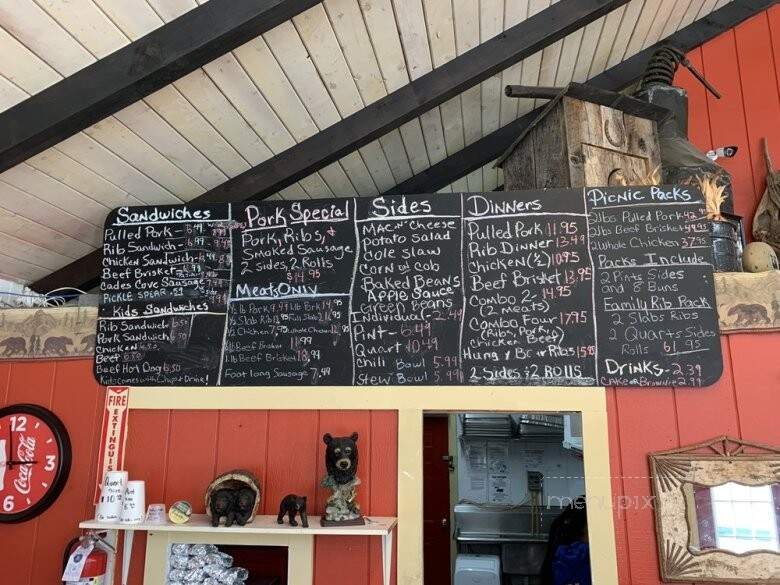 Sandwiches
Pulled Pork-
Rib Sandwich-
Chicken Sandwich-
Beef Brisket
Cades Cove Sausage
PICKLE SPEAR-
Kids Sandwiches
Rib Sandwich 6.50
Pork Sandwich
Chicken
Beef
Beef Hot Dog 6.50
Kids comes with Chips & Drink!
Pork Special
Pork, Ribs, &
Smoked Sausage
2 sides, 2 Rolls
$14.95
Meats Only
½ lb Pork 9.49
½ Chicken 7.95
½ lb Beef Brisket
1 lb Beef Brisket 18.99
Foot long Sausage 7.49
1 lb Pork 14.95
Whole Chicken
Sides
Mac-n-Cheese
potato Salad
Cole Slaw
Corn on Cob
Baked Beans
Apple Sauce
Green Beans
Individual- 2.49
Pint- 6.49
Quart 10.49
Chili Bowl 5.99
Stew Bowl 5.99
Dinners
Pulled Pork 11.95
Rib Dinner 13.49
Chicken (½) 10.95
Beef Brisket 13.95
Combo 2- 14.95
(2 meats)
Combo Four 17.95
(Ribs, Pork,
Chicken Beef)
Hung & Bear Ribs 15.95
2 Sides & 2 Rolls
Picnic Packs
2lbs Pulled Pork 42.95
2lbs Beef Brisket
2 Whole Chicken 37.95
Packs Include
2 Pints Sides
and 8 Buns
Family Rib Pack
2 Slabs Ribs
2 Quarts Sides
Rolls 61.95
Drinks- 2.39
Cake or Brownie 2.99
FIRE
EXTINGUISHER
12
3
6
Coca-Cola
menupix